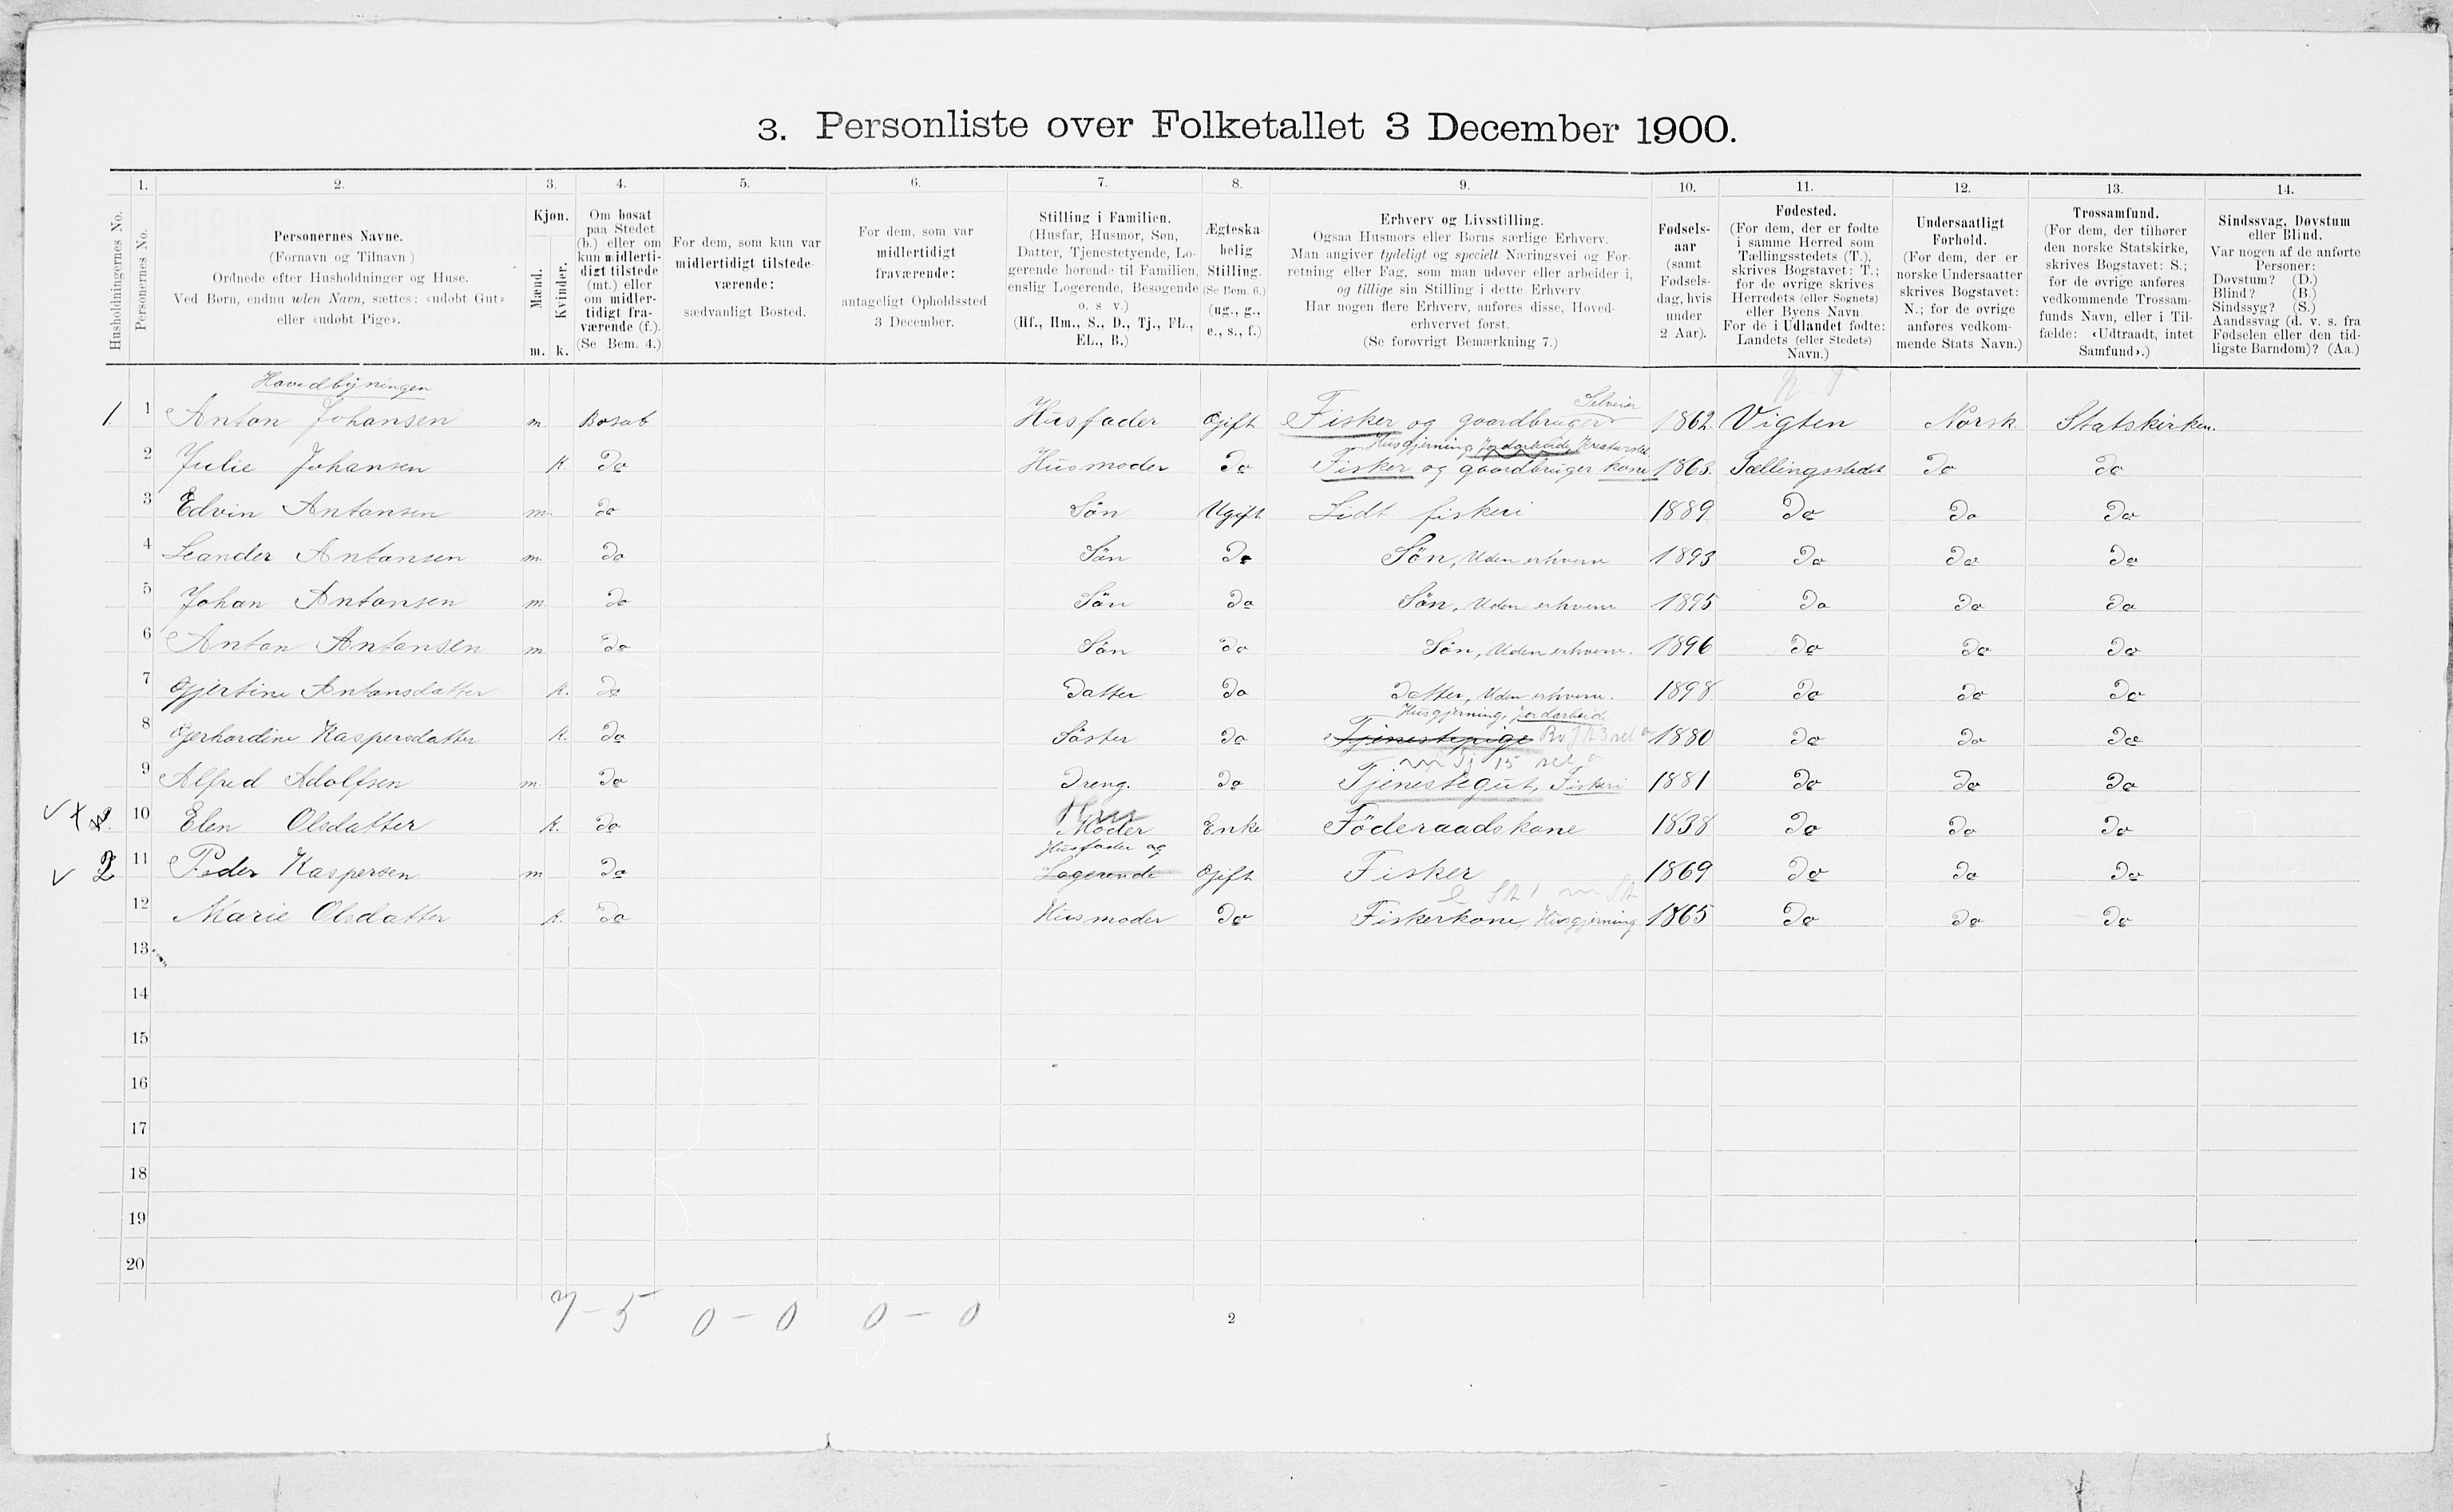 3. Personliste over Folketallet 3 December 1900.
1. 2. 3. 4. 5. 6. 7. 8. 9. 10. 11. 12. 13. 14.
Husholdningernes No.
Personernes No.
Personernes Navne.
(Fornavn og Tilnavn)
Ordnede efter Husholdninger og Huse.
Ved Børn, endnu uden Navn, sættes: «udøbt Gut»
eller «udøbt Pige».
Kjøn.
Mænd.
Kvinder.
m. k.
Om bosat
paa Stedet
(b.) eller om
kun midlerti-
digt tilstede
(mt.) eller
om midler-
tidigt fra-
værende (f.).
(Se Bem. 4.)
For dem, som kun var
midlertidigt tilstede-
værende:
sædvanligt Bosted.
For dem, som var
midlertidigt
fraværende:
antageligt Opholdssted
3 December.
Stilling i Familien.
(Husfar, Husmor, Søn,
Datter, Tjenestetyende, Lo-
gerende hørende til Familien,
enslig Logerende, Besøgende
o. s v.)
(Hf., Hm., S., D., Tj., FL.,
EL., B.)
Ægteska-
belig
Stilling.
(Se Bem. 6.)
(ug., g.,
e., s., f.)
Erhverv og Livsstilling.
Ogsaa Husmors eller Børns særlige Erhverv.
Man angiver tydeligt og specielt Næringsvei og For-
retning eller Fag, som man udøver eller arbeider i,
og tillige sin Stilling i dette Erhverv.
Har nogen flere Erhverv, anføres disse, Hoved-
erhvervet først.
(Se forøvrigt Bemærkning 7.)
Fødsels-
aar
(samt
Fødsels-
dag, hvis
under
2 Aar).
Fødested.
(For dem, der er fødte
i samme Herred som
Tællingsstedets (T.),
skrives Bogstavet: T.;
for de øvrige skrives
Herredets (eller Sognets)
eller Byens Navn.
For de i Udlandet fødte:
Landets (eller Stedets)
Navn.)
Undersaatligt
Forhold.
(For dem, der er
norske Undersaatter
skrives Bogstavet:
N.; for de øvrige
anføres vedkom-
mende Stats Navn.)
Trossamfund.
(For dem, der tilhører
den norske Statskirke,
skrives Bogstavet: S.;
for de øvrige anføres
vedkommende Trossam-
funds Navn, eller i Til-
fælde: «Udtraadt, intet
Samfund».)
Sindssvag, Døvstum
eller Blind.
Var nogen af de anførte
Personer:
Døvstum? (D.)
Blind? (B.)
Sindssyg? (S.)
Aandssvag (d. v. s. fra
Fødselen eller den tid-
ligste Barndom)? (Aa.)
Hovedbyningen
Selveier
1. 1 Anton Johansen m. Bosat Husfader Gift Fisker og gaardbruger 1862. Vigten Norsk Statskirken.
Husgjerning Jordarbeide Kreaturstel
2 Julie Johansen k. Do Husmoder Do Fisker og gaardbruger kone 1863. Tællingsstedet Do Do
3 Edvin Antonsen m. do Sön Ugift Lidt fiskeri 1889 Do Do Do
4 Leander Antonsen m. do Sön Do Sön, Uden erhverv 1893 Do Do Do
5 Johan Antonsen m. do Sön Do Sön, Uden erhverv 1895 Do Do Do
6 Anton Antonsen m Do Sön do Sön, Uden erhverv. 1896 Do Do Do
7 Gjertine Antonsdatter k. Do Datter Do Datter, Uden erhverv. 1898 Do Do Do
Husgjerning, Jordarbeide
8 Gerhardine Kaspersdatter k. Do Söster Do Tjenestepige 1880 Do Do Do
9 Alfred Adolfsen m. Do Dreng. Do Tjenestegut, Fiskeri 1881 Do Do Do
Hm
10 Elen Olsdatter k. Do Moder Enke Föderaadskone 1838 Do Do Do
Husfader og
2 11 Peder Kaspersen m Do Logerende Gift Fisker 1869 Do Do Do
12 Marie Olsdatter k. Do Husmoder Do Fiskerkone, Husgjerning 1865 Do Do Do
13
14
15
16
17
18
19
20
7 – 5 0 – 0 0 – 0
2